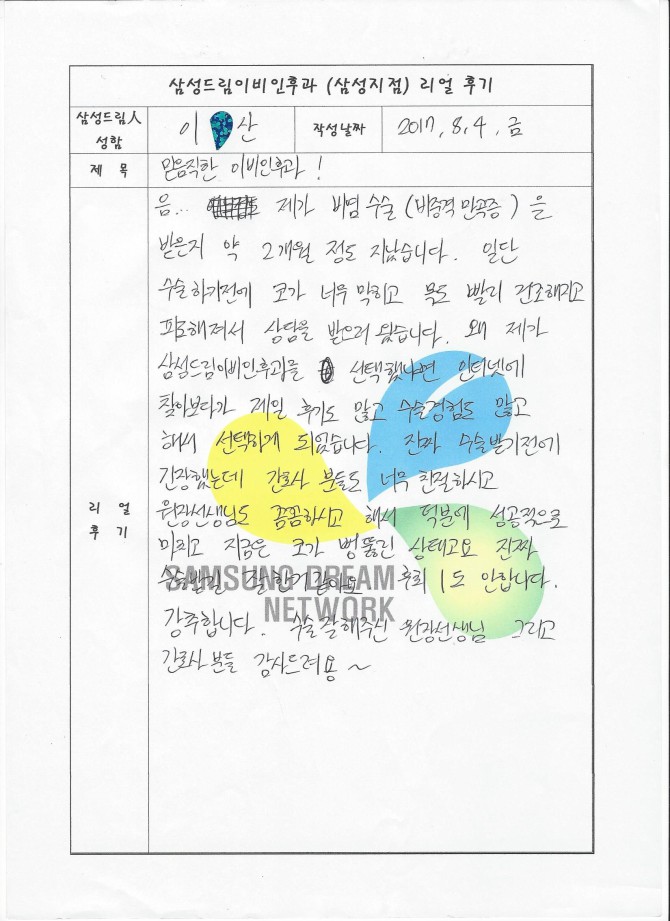 삼성드림이비인후과 (삼성지점) 리얼 후기
삼성드림人 성함
이 산
작성날짜
2017. 8. 4. 금
제 목
믿음직한 이비인후과 !
리 얼
후 기
음... 제가 비염 수술 (비중격 만곡증) 을
받은지 약 2개월 정도 지났습니다. 일단
수술하기전에 코가 너무 막히고 목도 빨리 건조해지고
피로해져서 상담을 받으러 왔습니다. 왜 제가
삼성드림이비인후과를 선택했냐면 인터넷에
찾아보다가 제일 후기도 많고 수술경험도 많고
해서 선택하게 되었습니다. 진짜 수술받기전에
긴장했는데 간호사 분들도 너무 친절하시고
원장선생님도 꼼꼼하시고 해서 덕분에 성공적으로
마치고 지금은 코가 뻥뚫린 상태고요 진짜
수술받길 잘한거같아요 후회 1도 안합니다.
강추합니다. 수술잘해주신 원장선생님 그리고
간호사분들 감사드려용 ~
SAMSUNG DREAM
NETWORK